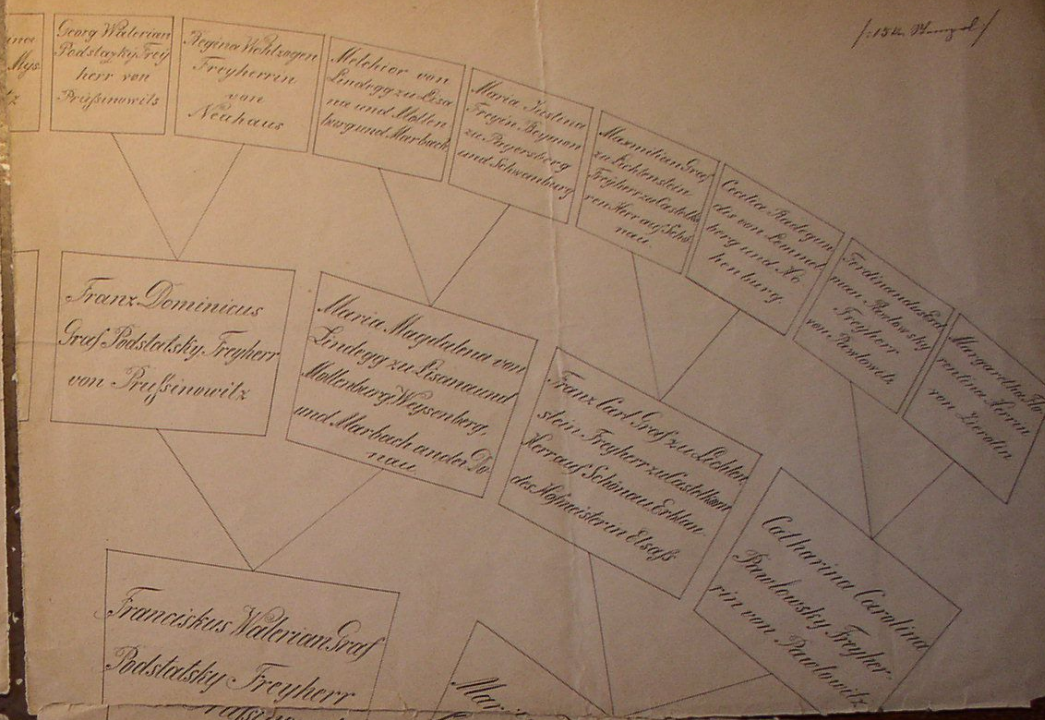 /:15 kr. Stempel:/
Georg Walerian
Podstazky Frey
herr von
Prüßinowits
Regina Wohlzogen
Freyherrin
von
Neuhaus
Melchior von
Lindegg zu Lisa
na und Mollen
berg und Marbach
Maria Justina
Freyin
zu Payersberg
und Schwanburg
Maxmilian Graf
zu Lichtenstein
Freyherr zu Castelk
ren Herr auf Schö
nau
Cecilia Radegun
dis von Lemmel
berg und Ho
henburg
Ferdinandus Erd
man Pawlowsky
Freyherr
von Pawlowitz
Margaretha Flo
rentina Herrin
von Zierotin
Franz Dominicus
Graf Podstatsky Freyherr
von Prüßinowitz
Maria Magdalena von
Lindegg zu Lisana und
Mollenberg Weysenberg,
und Marbach an der Do
nau
Franz Carl Graf zu Lichten
stein Freyherr zu Castelkorn
Herr auf Schönau Erblan
des Hofmeister in Elsaß
Catharina Carolina
Pawlowsky Freyher
rin von Pawlowitz
Franciskus Walerian Graf
Podstatsky Freyherr